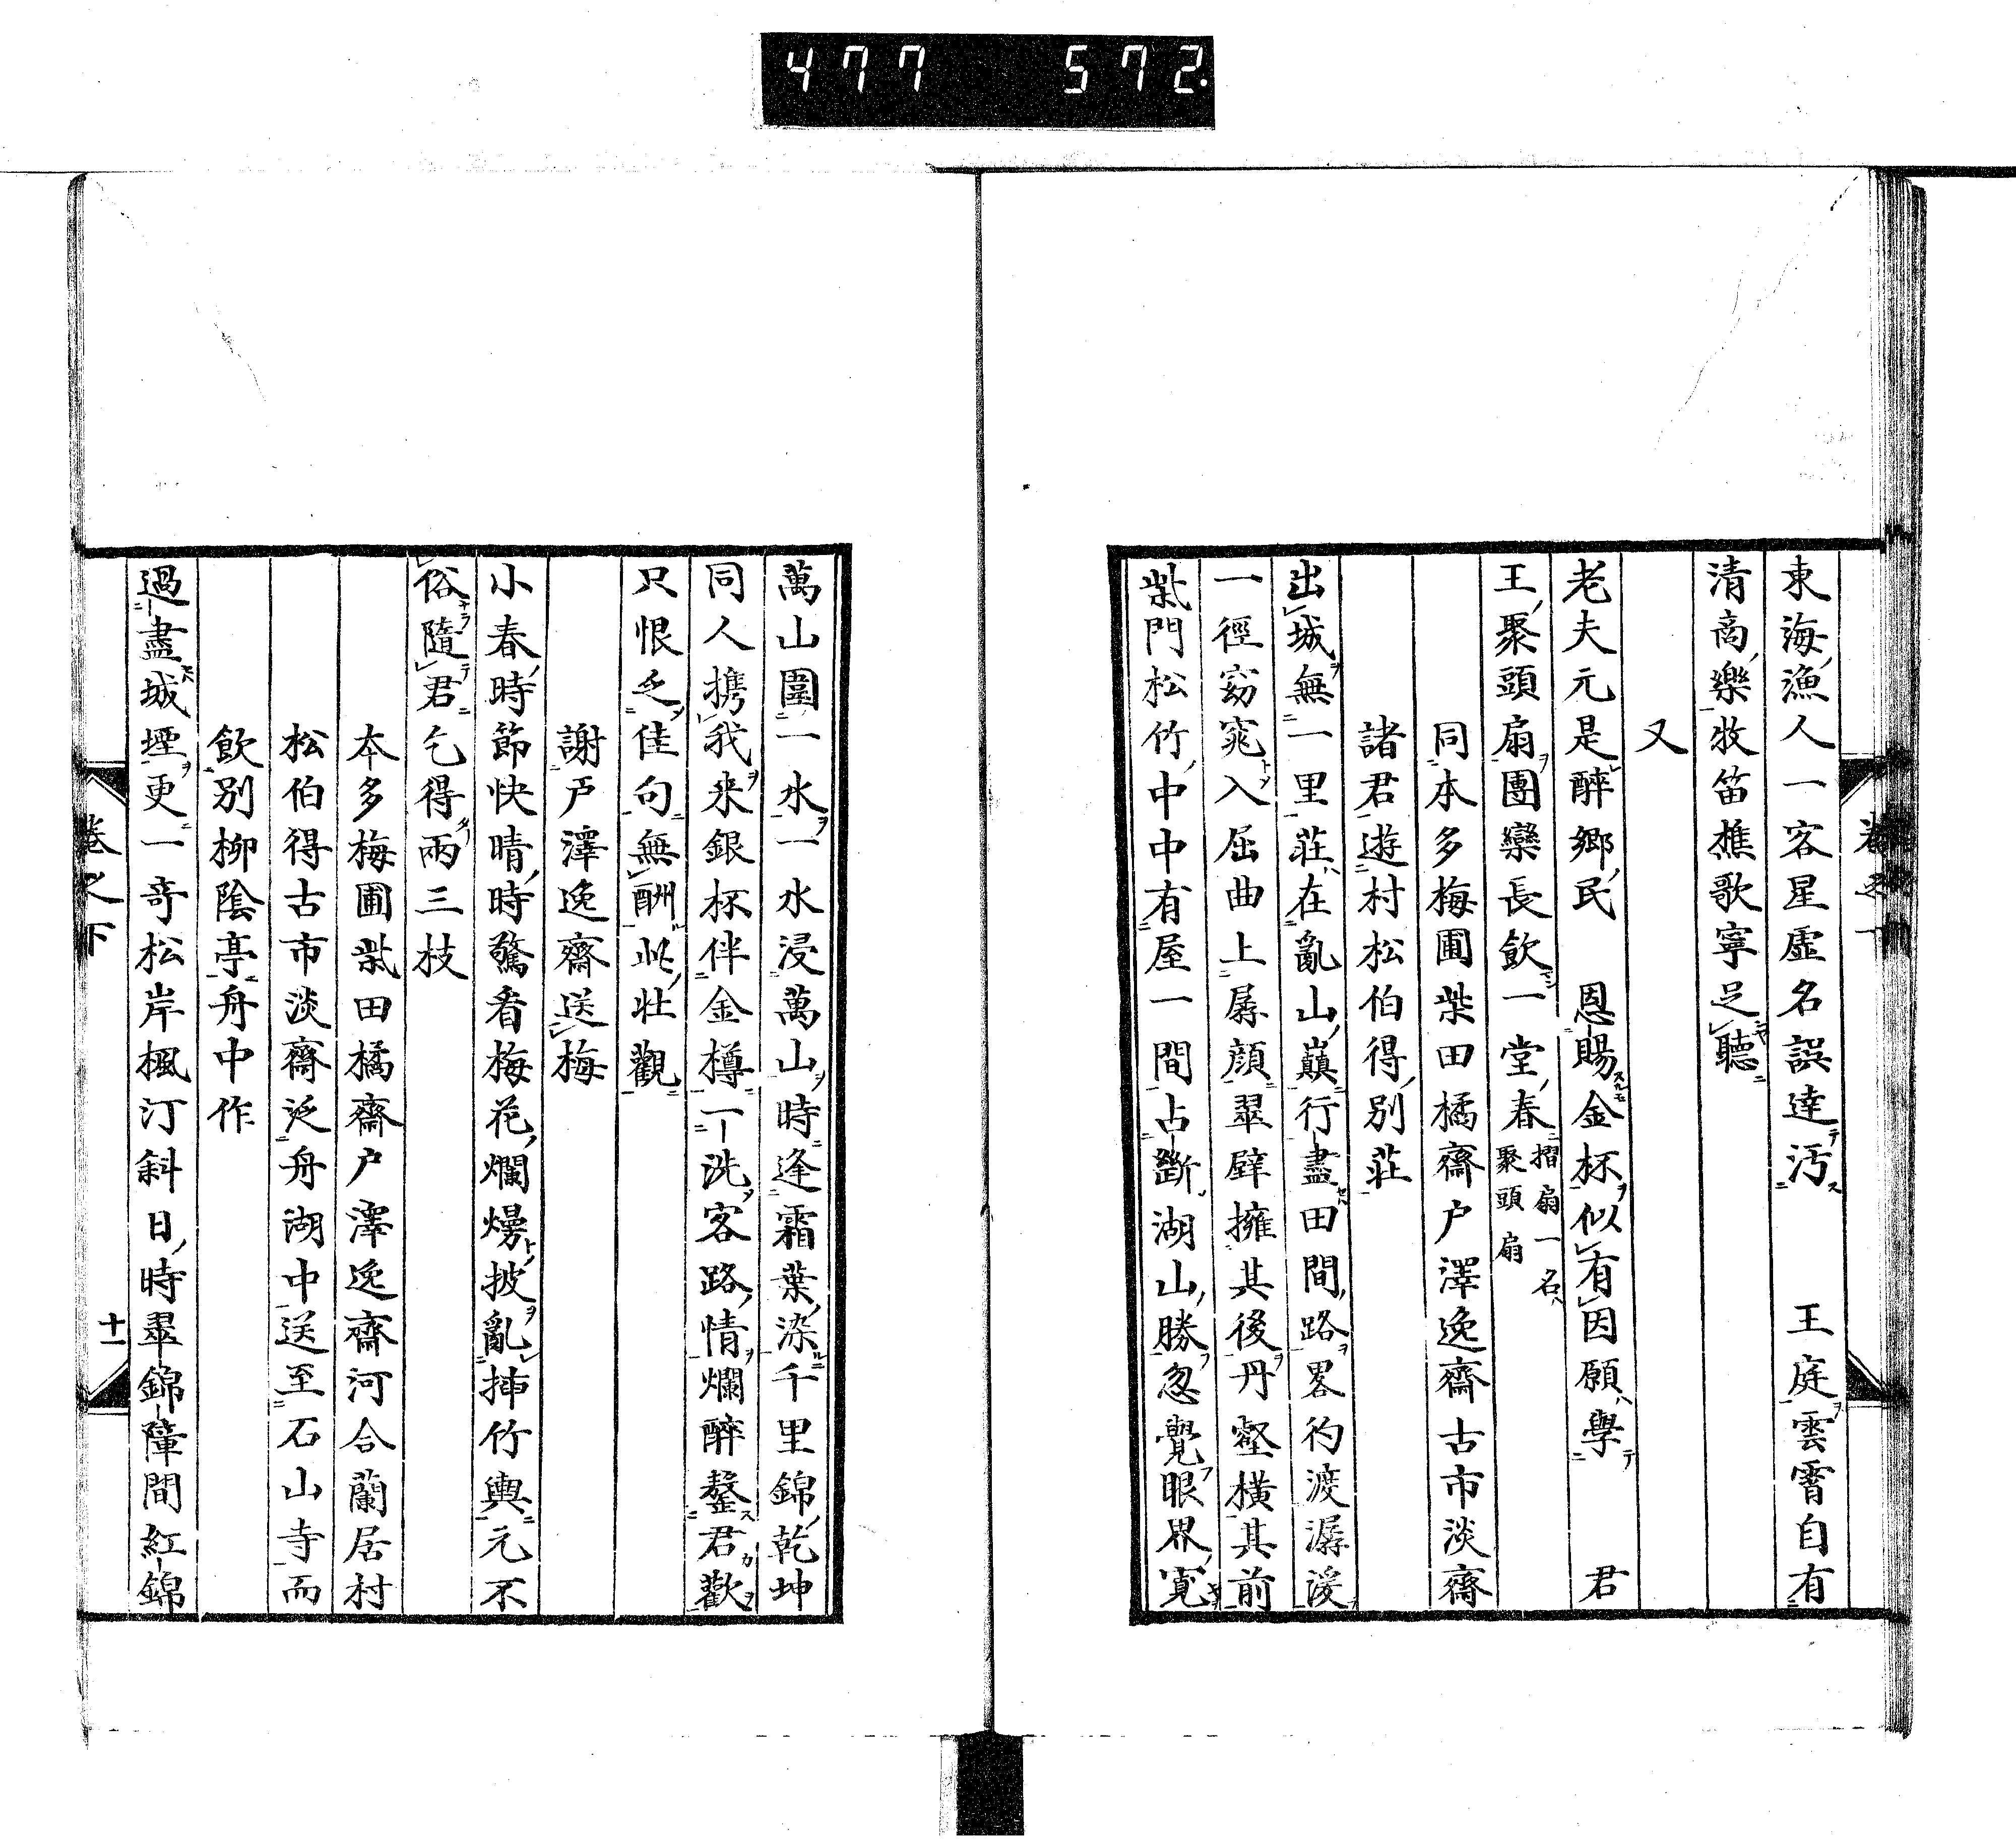 477 572
東海漁人一客星虛名誤達汚 王庭雲霄自有
清高樂牧笛樵歌寧足聽
又
老夫元是醉鄉民 恩賜金杯似有因願學 君
王聚頭扇團欒長飲一堂春 摺扇一名聚頭扇
同本多梅圃柴田橘齋户澤逸齋古市淡齋
諸君遊村松伯得別莊
出城無一里莊在亂山巔行盡田間路畧彴渡潺湲
一徑窈窕入屈曲上孱顔翠壁擁其後丹壑橫其前
柴門松竹中中有屋一間占斷湖山勝忽覺眼界寬
萬山圍一水一水浸萬山時逢霜葉染千里錦乾坤
同人携我来銀杯伴金樽一洗客路情爛醉罄君歡
只恨乏佳句無酬此壯觀
謝戸澤逸齋送梅
小春時節快晴時驚看梅花爛熳披亂揷竹輿元不
俗隨君乞得兩三枝
本多梅圃柴田橘齋户澤逸齋河合蘭居村
松伯得古市淡齋泛舟湖中送至石山寺而
飲別柳陰亭舟中作
過盡城堙更一奇松岸楓汀斜日時翠錦障間紅錦
卷之下
十一